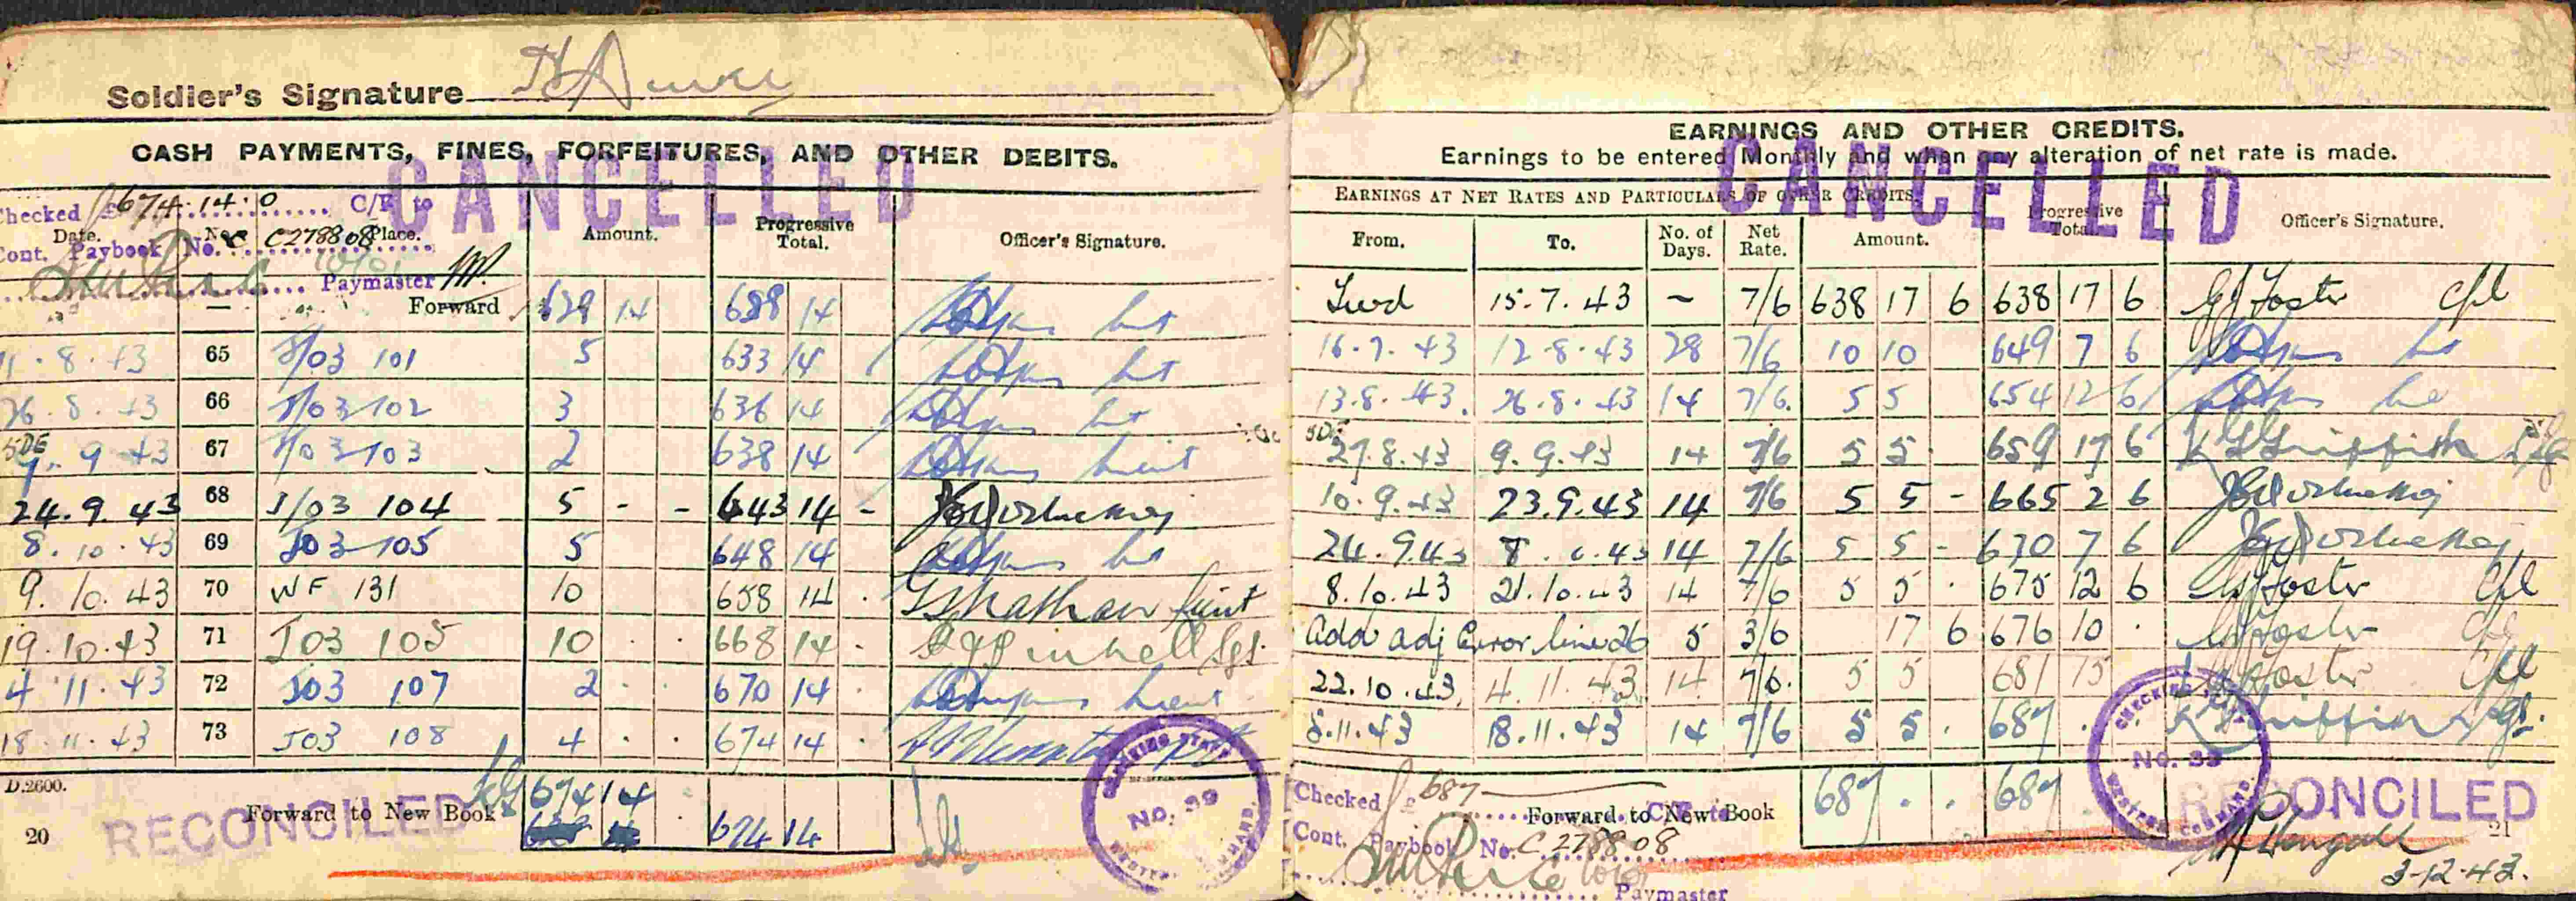 Soldier's Signature
CASH PAYMENTS, FINES, FORFEITURES, AND OTHER DEBITS.
CANCELLED
Checked £ 674.14.0 C/F to
Cont. Paybook No. C278808
Paymaster
Date. No. Place. Amount. Progressive Total. Officer's Signature.
Forward 629 14 14
11.8.43 65 J/03 101 5 633 14
26.8.43 66 J/03 102 3 636 14
9.43 67 J/03 103 2 638 14 Lieut
24.9.43 68 J/03 104 5 - - 643 14 -
8.10.43 69 J03 105 5 648 14
9.10.43 70 WF 131 10 658 14 Lieut
19.10.43 71 J03 105 10 668 14 Sgt.
4.11.43 72 J03 107 2 670 14 Lieut
18.11.43 73 J03 108 4 674 14
D.2600.
Forward to New Book 674 14 674 14
RECONCILED
20
CHECKING STAFF
NO. 39
WESTERN COMMAND.
EARNINGS AND OTHER CREDITS.
Earnings to be entered Monthly and when any alteration of net rate is made.
CANCELLED
EARNINGS AT NET RATES AND PARTICULARS OF OTHER CREDITS.
From. To. No. of Days. Net Rate. Amount. Progressive Total. Officer's Signature.
Fwd 15.7.43 ~ 7/6 638 17 6 638 17 6 GJ Foster Cpl
16.7.43 12.8.43 28 7/6 10 10 649 7 6
13.8.43. 26.8.43 14 7/6. 5 5 654 12 6
27.8.43 9.9.43 14 7/6 5 5 659 17 6 Griffith
10.9.43 23.9.43 14 7/6 5 5 - 665 2 6
24.9.43 14 7/6 5 5 - 670 7 6
8.10.43 21.10.43 14 7/6 5 5 675 12 6 Foster Cpl
Add adj Error line 26 5 3/6 17 6 676 10 Foster Cpl
22.10.43. 4.11.43 14 7/6. 5 5 681 15 Foster Cpl
5.11.43 18.11.43 14 7/6 5 5 687 Griffith Sgt.
Checked £ 687
Forward to New Book 687 . . 687
Cont. Paybook No. C278808
Paymaster
CHECKING STAFF
NO. 39
WESTERN COMMAND.
RECONCILED
21
3-12-43.